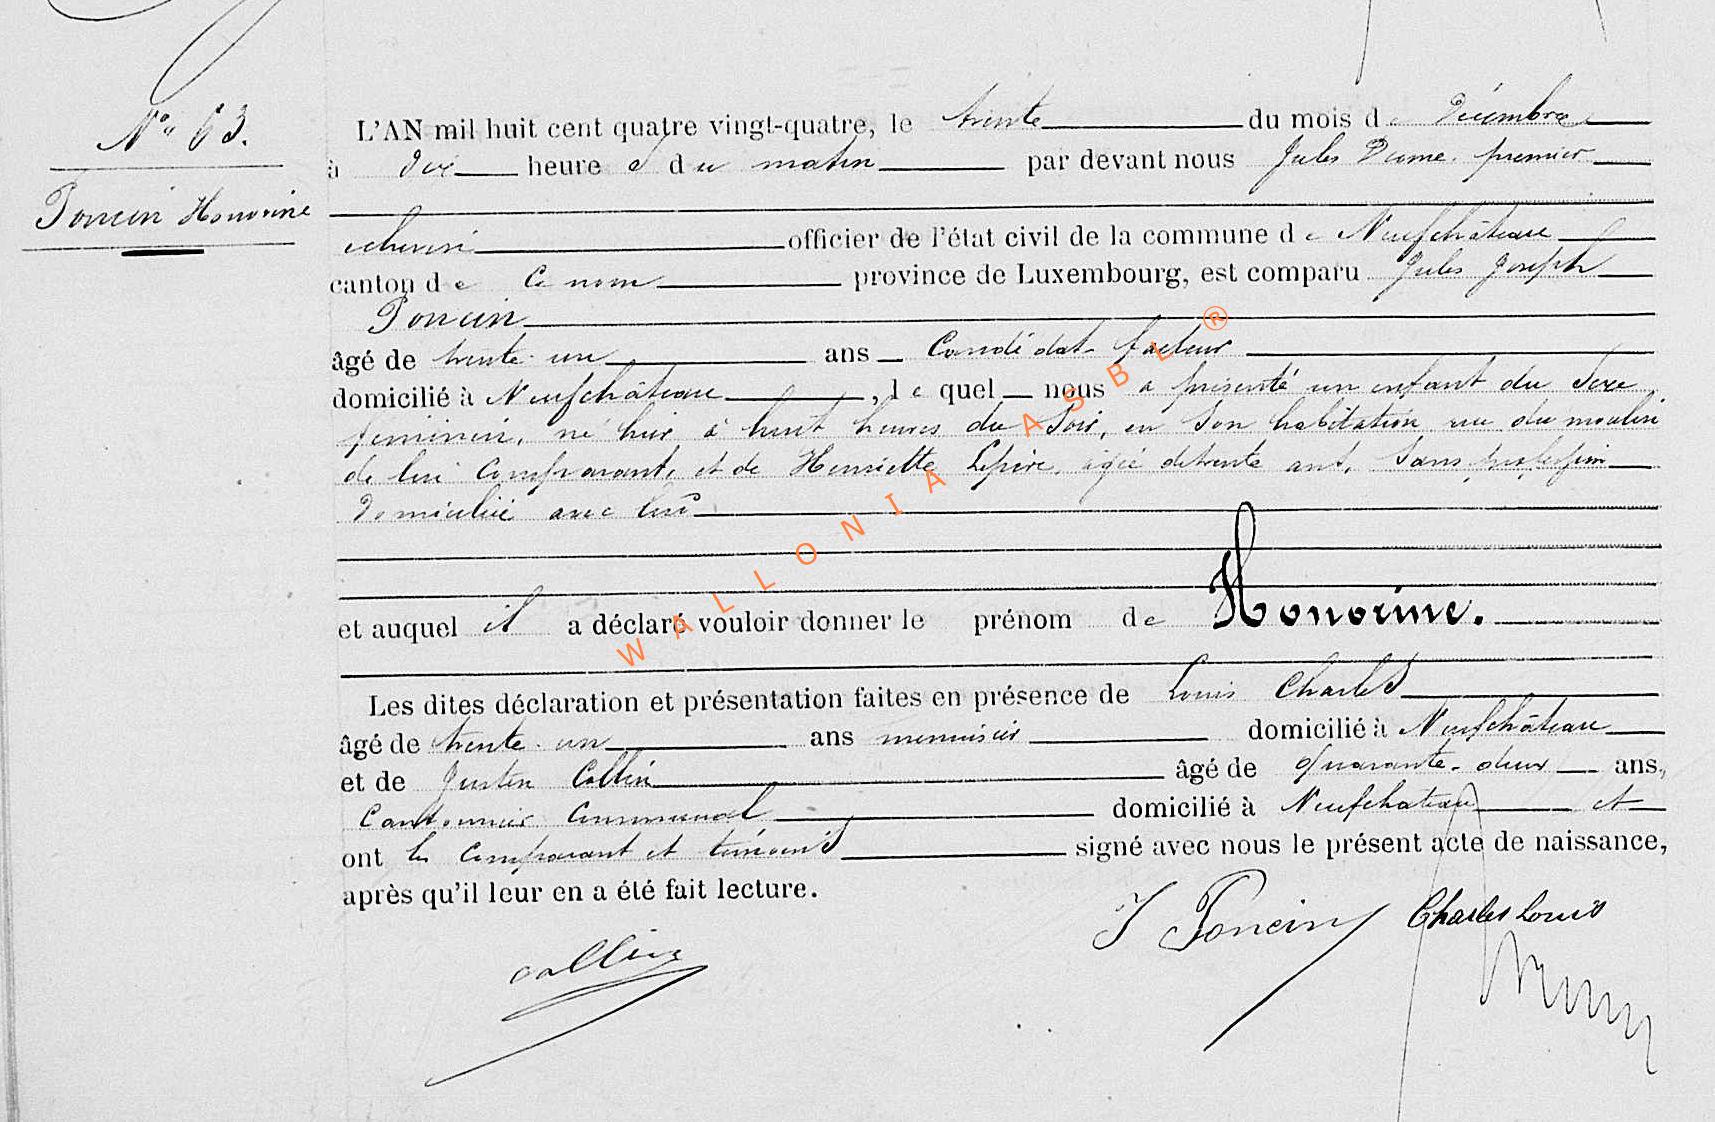 N° 63.
Poncin Honorine
L'AN mil huit cent quatre vingt-quatre, le trente du mois de Décembre
à dix heures du matin par devant nous Jules premier
echevin officier de l'état civil de la commune de Neufchâteau
canton de ce nom province de Luxembourg, est comparu Jules Joseph
Poncin
âgé de trente un ans Candidat facteur
domicilié à Neufchâteau, lequel nous a présenté un enfant du sexe
feminin, né hier à huit heures du soir, en son habitation rue du moulin
de lui comparant, et de Henriette Lepère, agée de trente ans, sans profession
domiciliée avec lui
et auquel il a déclaré vouloir donner le prénom de Honorine.
Les dites déclaration et présentation faites en présence de Louis Charles
âgé de trente un ans menuisier domicilié à Neufchâteau
et de Justin Collin âgé de quarante-deux ans,
Cantonnier Communal domicilié à Neufchateau et
ont les comparant et témoins signé avec nous le présent acte de naissance,
après qu'il leur en a été fait lecture.
J Poncin Charles Louis
Collin
WALLONIA ASBL ®